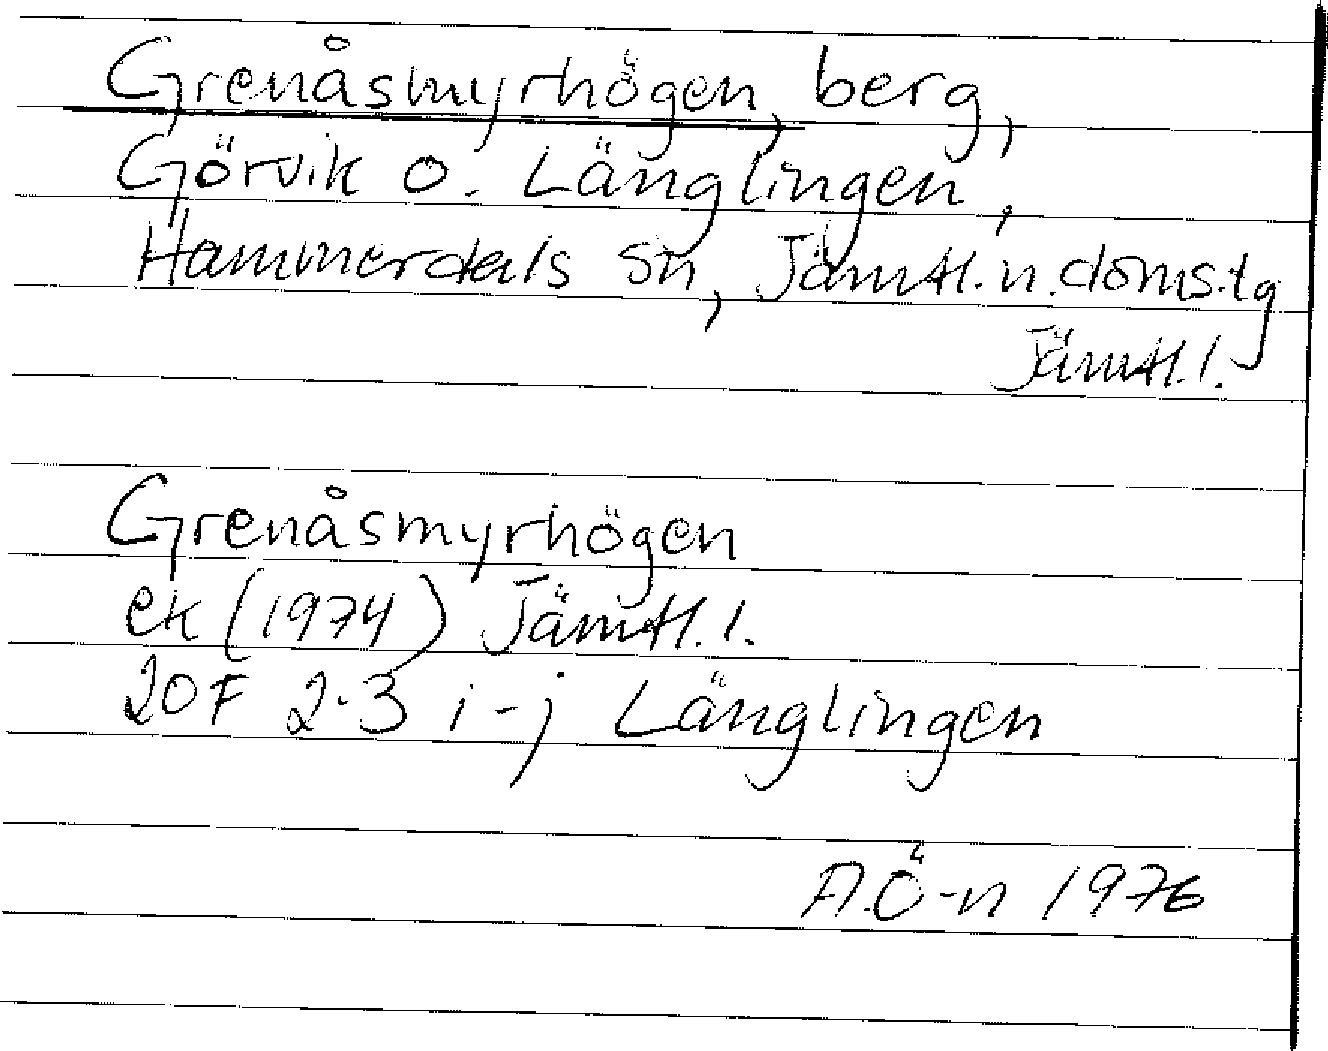 Grenåsmyrhögen, berg,
Görvik o. Länglingen,
Hammerdals sn, Jämtl. n. doms.tg
Jämtl. l.
Grenåsmyrhögen
ek (1974) Jämtl. l.
20F 2-3 i-j Länglingen
A.Ö-n 1976